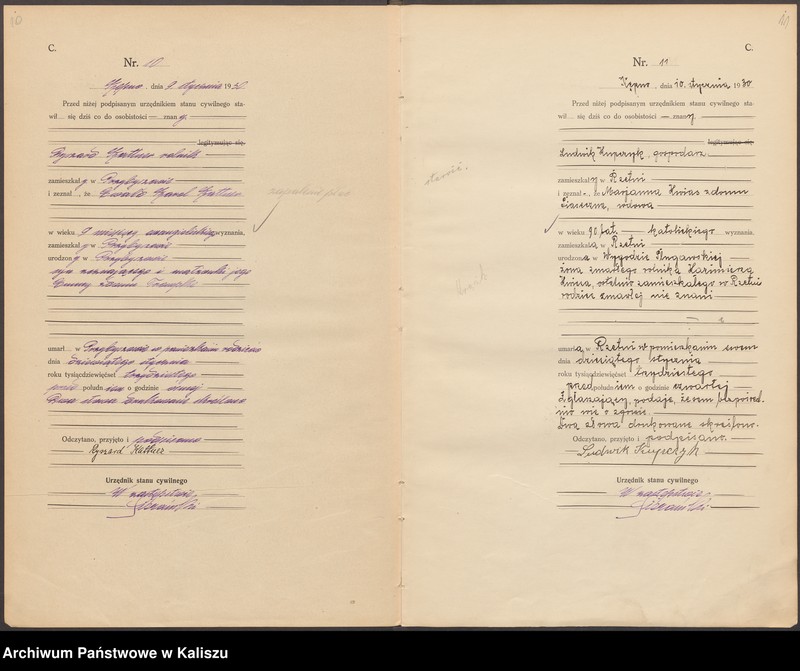 10
C.
Nr. 10
Kępno, dnia 9 stycznia 1930
Przed niżej podpisanym urzędnikiem stanu cywilnego sta-
wił się dziś co do osobistości — znany
legitymując się,
Ryszard Kattner rolnik
zamieszkały w Przybyszowie
i zeznał, że Ewald Karol Kattner
w wieku 9 miesięcy ewangelickiego wyznania,
zamieszkały w Przybyszowie
urodzony w Przybyszowie
syn zeznającego i małżonki jego
Emmy z domu
umarł w Przybyszowie w pomieszkaniu rodziców
dnia dziewiątego stycznia
roku tysiącdziewięćset trzydziestego
przed połudn iem o godzinie ósmej
Dwa słowa drukowane skreślono
Odczytano, przyjęto i podpisano
Ryszard Kattner
Urzędnik stanu cywilnego
W zastępstwie
11
C.
Nr. 11
Kępno, dnia 10. stycznia 1930
Przed niżej podpisanym urzędnikiem stanu cywilnego sta-
wił się dziś co do osobistości — znany
legitymując się,
Ludwik Kupczyk, gospodarz
zamieszkały w Rzetni
i zeznał, że Marjanna Kwias z domu
wdowa
w wieku 90 lat — katolickiego wyznania.
zamieszkała w Rzetni
urodzona w Wygodzie
żona zmarłego rolnika Kazimierza
Kwiasa, ostatnio zamieszkałego w Rzetni
rodzice zmarłej nie znani
umarła w Rzetni w pomieszkaniu swem
dnia dziesiątego stycznia
roku tysiącdziewięćset trzydziestego
przed połudn iem o godzinie czwartej
Zgłaszający podaje, że sam bezpośred-
nio wie o zgonie.
Dwa słowa drukowane skreślono.
Odczytano, przyjęto i podpisano.
Ludwik Kupczyk
Urzędnik stanu cywilnego
W zastępstwie
Archiwum Państwowe w Kaliszu